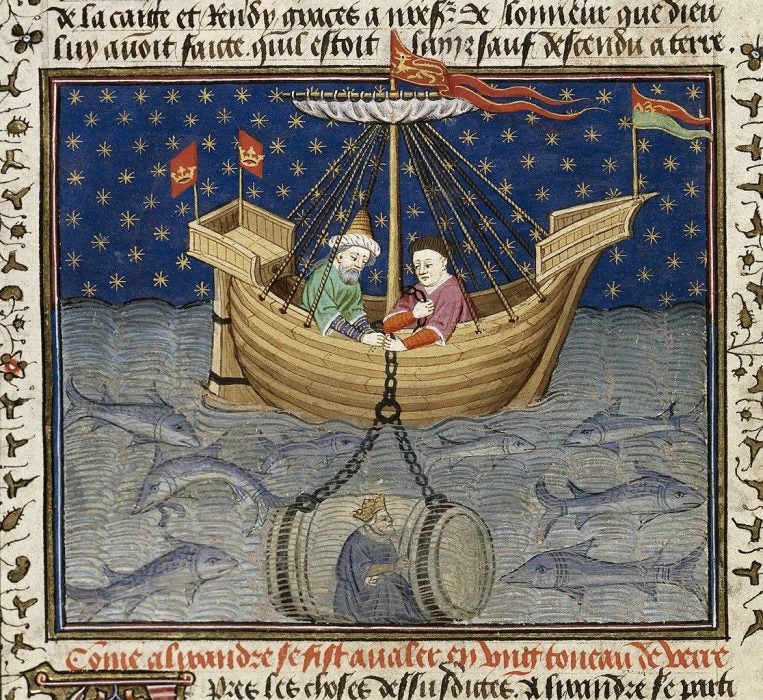 de la caige et rendy graces a nrẽ sr̃ de lonneur que dieu
luy auoit faicte quil estoit sain z sauf descendu a terre.
Cõme alixandre se fist aualer en vng tonneau de verre
pres les choses dessusdictes. Alixandre se parti